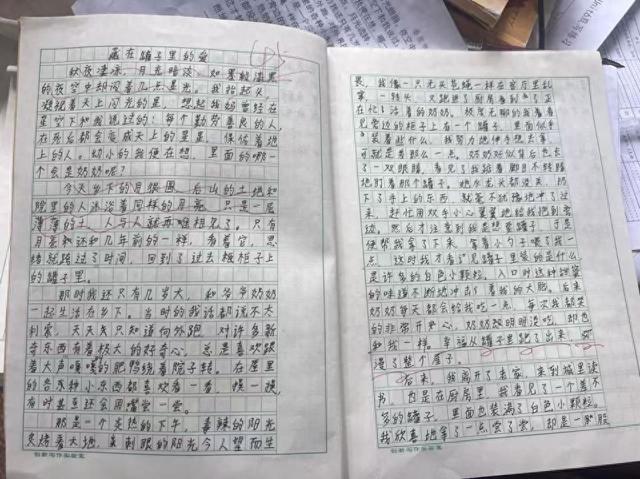 藏在罐子里的爱
秋夜凄凉，月光暗淡，如墨般漆黑
的夜空中却闪着几点星光。我抬起头，
凝视着天上闪光的星，想起妈曾经在
星空下和我说过的：每个勤劳善良的人，
在死后都会变成天上的星星，保佑着地
上的人。幼小的我便在想，里面的哪一
个会是奶奶呢？
今天乡下的月很圆，后山的土地和
院里的人沐浴着同样的月亮，只是一层
薄薄的土，人与人就再难相见了。只有
月亮和还和几年前的一样，看着它，思
绪就跑过了时间，回到了过去橱柜子上
的罐子里。
那时我还只有几岁大，和爷爷奶奶
一起生活在乡下。当时的我话都说不大
利索，天天只知道向外跑，对许多新
奇东西有着极大的好奇心，总是喜欢跟
着大声嘎嘎的肥鸭绕着院子转。在屋里
的各种小东西都喜欢看一看，摸一摸，
有时甚至还会用嘴尝一尝。
那是一个炎热的下午，毒辣的阳光
炙烤着大地，美刺眼的阳光令人望而生
畏，我像一只无头苍蝇一样在客厅里乱
窜，一转头，又跑进了厨房看到了正
在忙活着的奶奶。极度无聊的我看着
见旁边的柜子上有一个罐子，里面似乎
装着些什么，我努力地伸手想去拿，
可就是差那么一点。奶奶好似背后也长
了一双眼睛，看见了我踮着脚目不转睛
地盯着那个罐子，她外头都没来，放
下了手上的东西，就毫不犹豫地冲了过
来，赶忙用双手小心翼翼地给我抱到旁
边，然后才注意到我是想要罐子，于是
便帮我拿了下来，拿着小勺子喂了我一
点，这时我才看清见罐子里装的是什么，
是许多的白色小颗粒，入口时这种甜蜜
的味道不断地冲击了着我的大脑。后来
奶奶每天都会给我吃一点，每次我都笑
的非常开开心，奶奶也明明没吃，却也
和我一样，幸福从罐子里跑了出来，
漫了整个屋子。
后来，我离开了老家，来到城里读
书，也是在厨房里，我看见了一个差不
多的罐子，里面也装满了白色小颗粒。
我欣喜地拿了一点尝了尝，却是一股
创新写作实验室